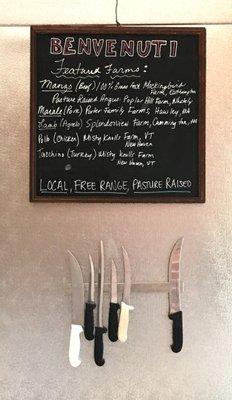 BENVENUTI
Featured Farms:
Manzo (Beef) 100% Grass Fed Mockingbird
Farm, Easthampton
Pasture Raised Angus: Poplar Hill Farm, Whately
Maiale (Pork) Porter Family Farms, Hawley, MA
Lamb (Agnello) Splendorview Farm, Cummington, MA
Pollo (Chicken) Misty Knolls Farm, VT
New Haven
Tacchino (Turkey) Misty Knolls Farm,
New Haven, VT
LOCAL, FREE RANGE, PASTURE RAISED